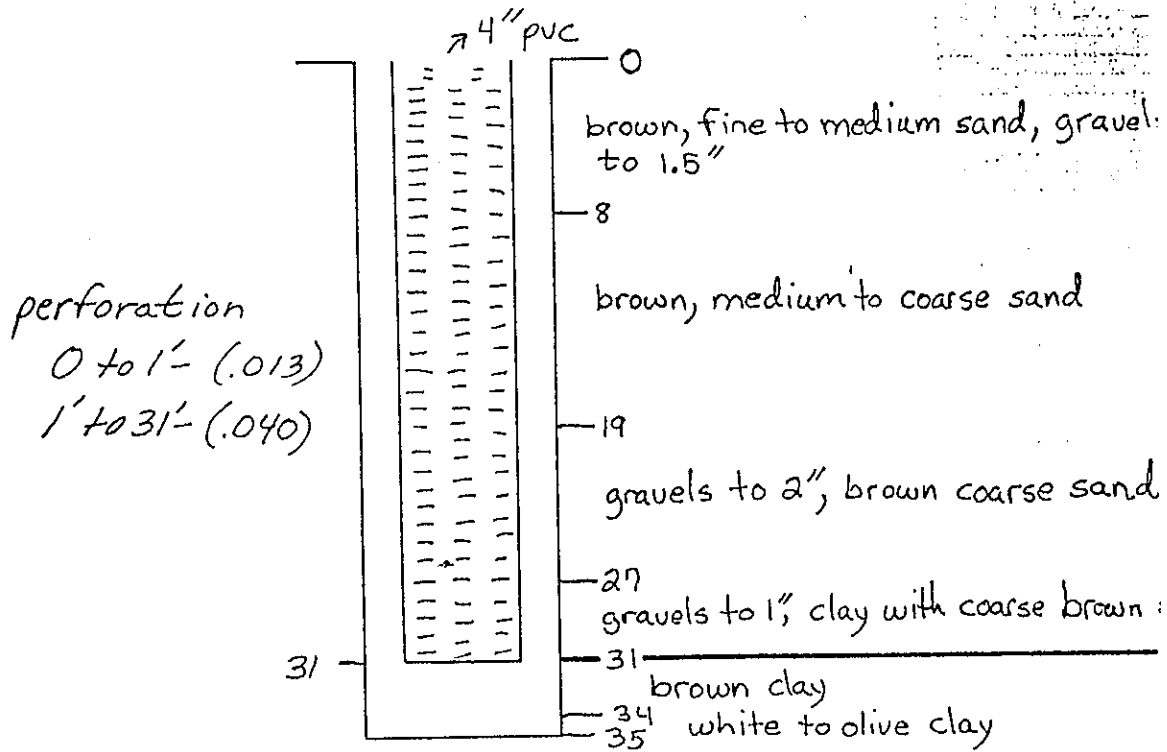 4" PVC
0
brown, fine to medium sand, gravel
to 1.5"
8
brown, medium to coarse sand
perforation
0 to 1'- (.013)
1' to 31'- (.040)
19
gravels to 2", brown coarse sand
27
gravels to 1", clay with coarse brown
31
31
brown clay
34
white to olive clay
35